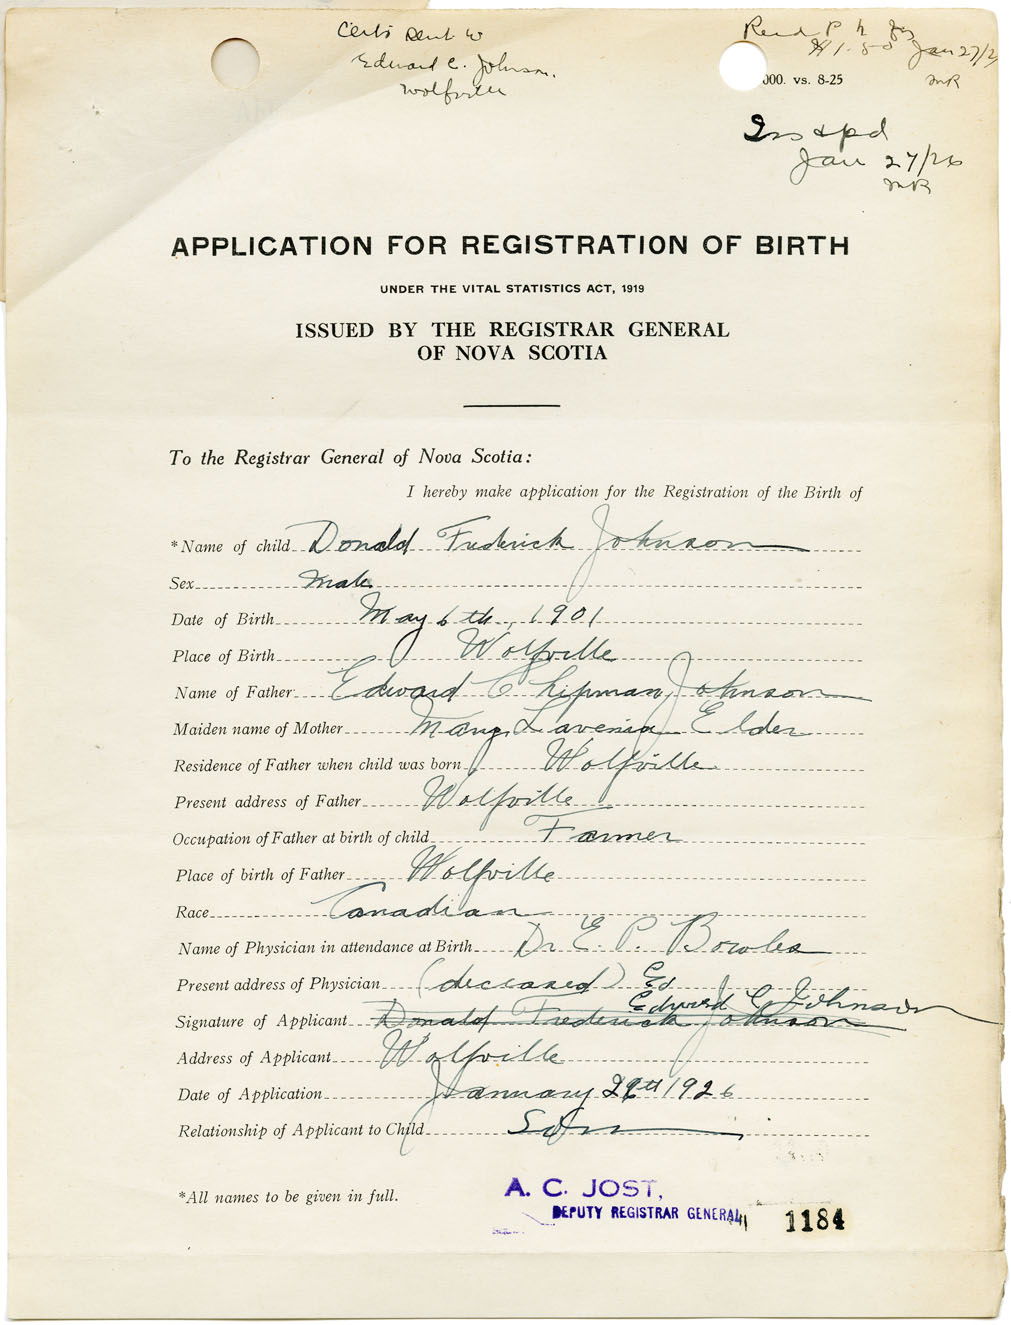 Certs sent to
Edward C. Johnson.
Wolfville
Recd P N
$1.50 Jan 27/26
MR
000. vs. 8-25
Ins & pd
Jan 27/26
MR
APPLICATION FOR REGISTRATION OF BIRTH
UNDER THE VITAL STATISTICS ACT, 1919
ISSUED BY THE REGISTRAR GENERAL
OF NOVA SCOTIA
To the Registrar General of Nova Scotia:
I hereby make application for the Registration of the Birth of
*Name of child Donald Frederick Johnson
Sex Male
Date of Birth May 6th, 1901
Place of Birth Wolfville
Name of Father Edward Chipman Johnson
Maiden name of Mother Mary Lavenia Elder
Residence of Father when child was born Wolfville
Present address of Father Wolfville
Occupation of Father at birth of child Farmer
Place of birth of Father Wolfville
Race Canadian
Name of Physician in attendance at Birth Dr E. P. Bowles
Present address of Physician (deceased) Ed
Edward C. Johnson
Signature of Applicant Donald Frederick Johnson
Address of Applicant Wolfville
Date of Application January 26th 1926
Relationship of Applicant to Child Son
*All names to be given in full.
A. C. JOST,
DEPUTY REGISTRAR GENERAL
1184